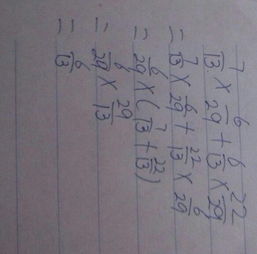 7/13 × 6/29 + 6/13 × 22/29
= 7/13 × 6/29 + 22/13 × 6/29
= 6/29 × (7/13 + 22/13)
= 6/29 × 29/13
= 6/13